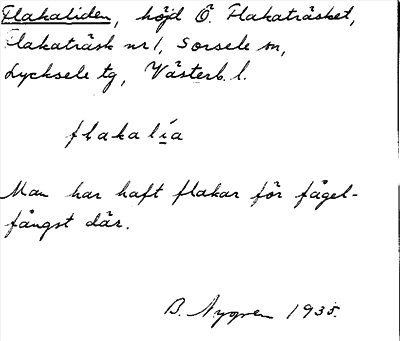 Flakaliden, höjd Ö. Flakaträsket,
Flakaträsk nr 1, Sorsele sn,
Lycksele tg, Västerb. l.
flakalía
Man har haft flakar för fågel-
fångst där.
B. Nygren 1935.